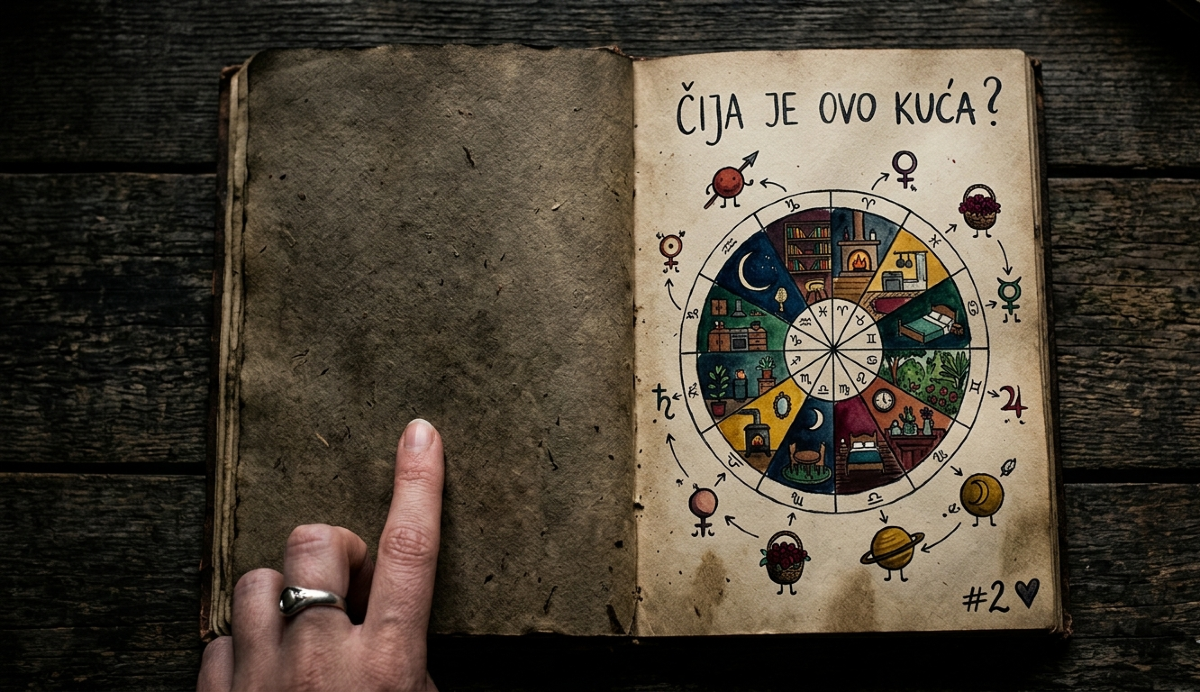 ČIJA JE OVO KUĆA?
#2 ♥